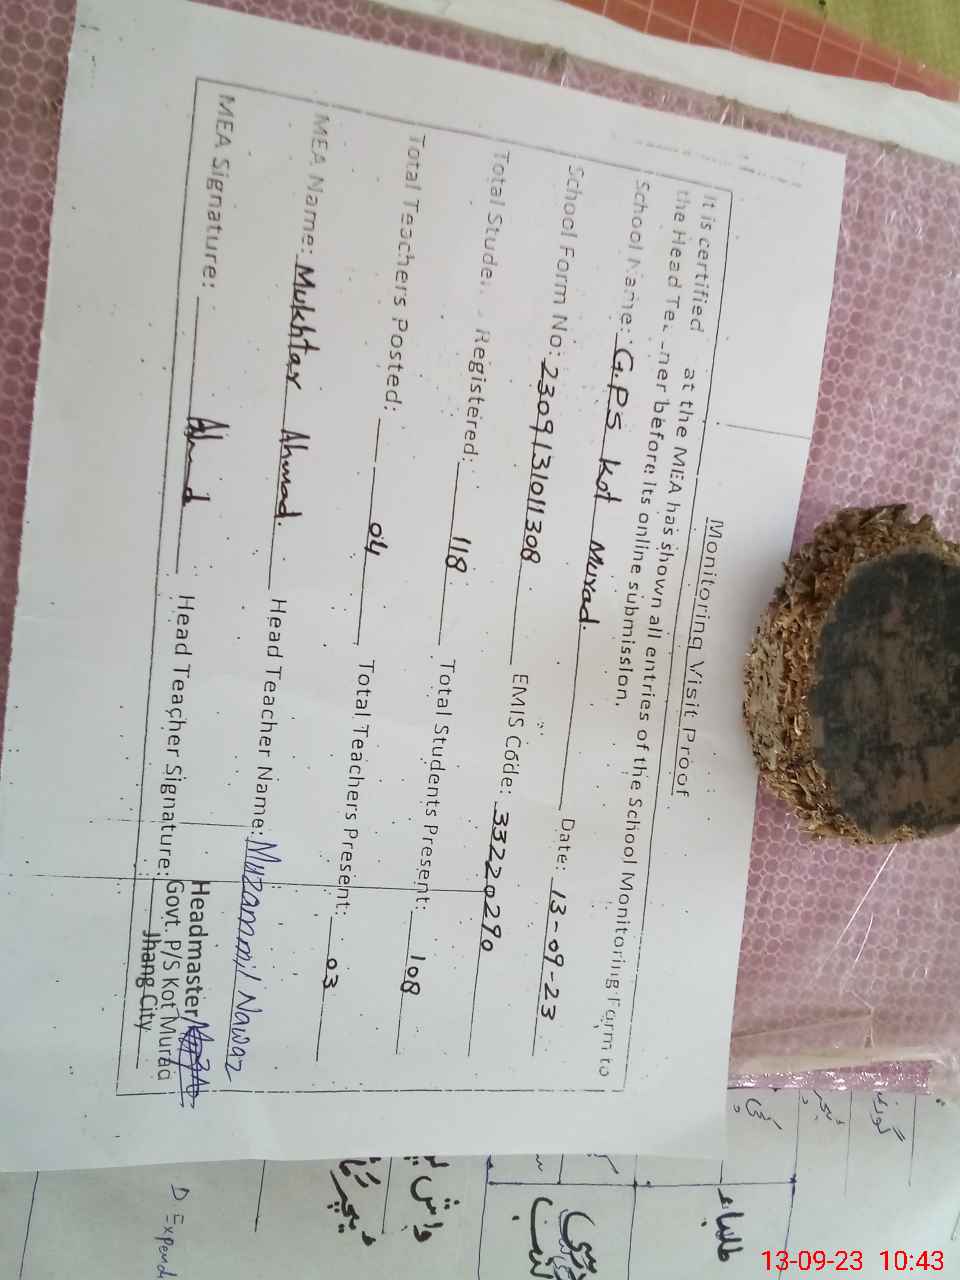 Monitoring Visit Proof
It is certified at the MEA has shown all entries of the School Monitoring Form to
the Head Tea ner before its online submission.
School Name: G.P.S Kot Murad. Date: 13-09-23
School Form No: 2309131011308 EMIS Code: 33220290
Total Studen Registered: 118 Total Students Present: 108
Total Teachers Posted: 04 Total Teachers Present: 03
MEA Name: Mukhtar Ahmad. Head Teacher Name: Muzammil Nawaz
MEA Signature: Ahmad Head Teacher Signature:
Headmaster
Govt. P/S Kot Murad
Jhang City
طلباء
D Expend
13-09-23 10:43